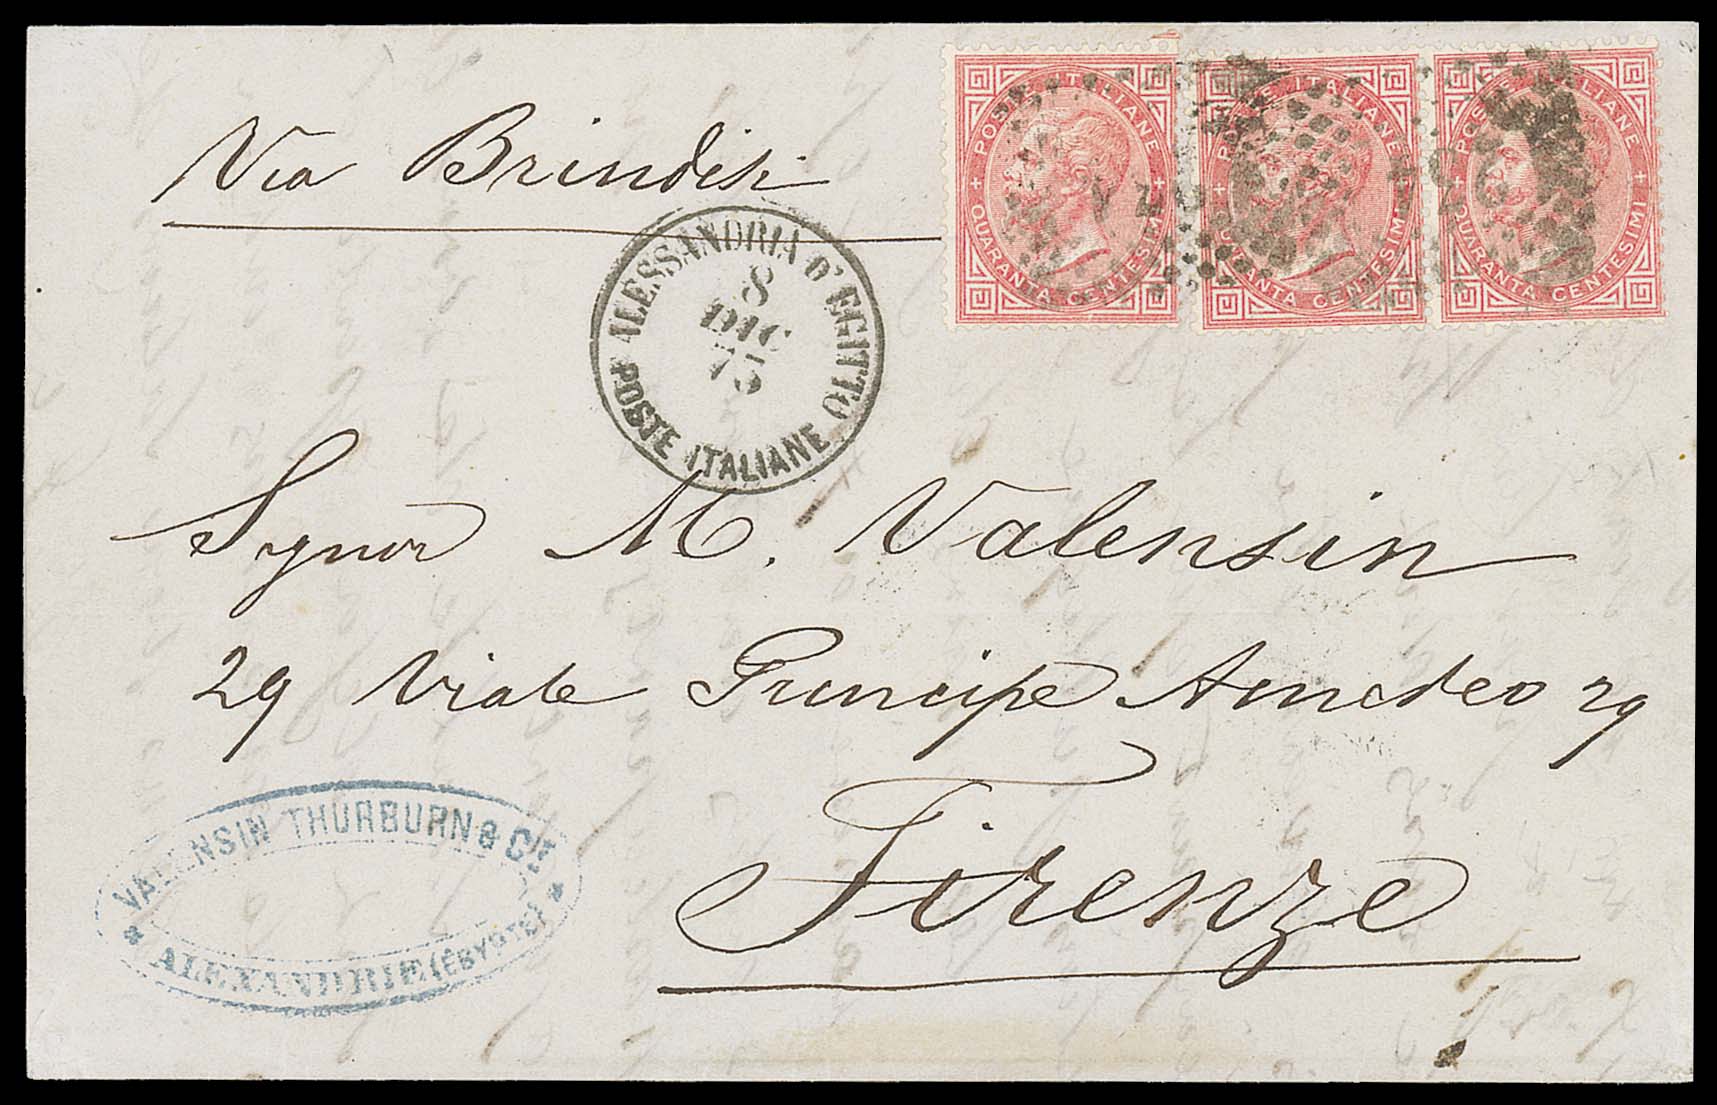 Via Brindisi
POSTE ITALIANE
QUARANTA CENTESIMI
POSTE ITALIANE
QUARANTA CENTESIMI
POSTE ITALIANE
QUARANTA CENTESIMI
234
ALESSANDRIA D'EGITTO
8
DIC
75
POSTE ITALIANE
Signor M. Valensin
29 Viale Principe Amedeo 29
Firenze
VALENSIN THURBURN & CIE
ALEXANDRIE (EGYPTE)